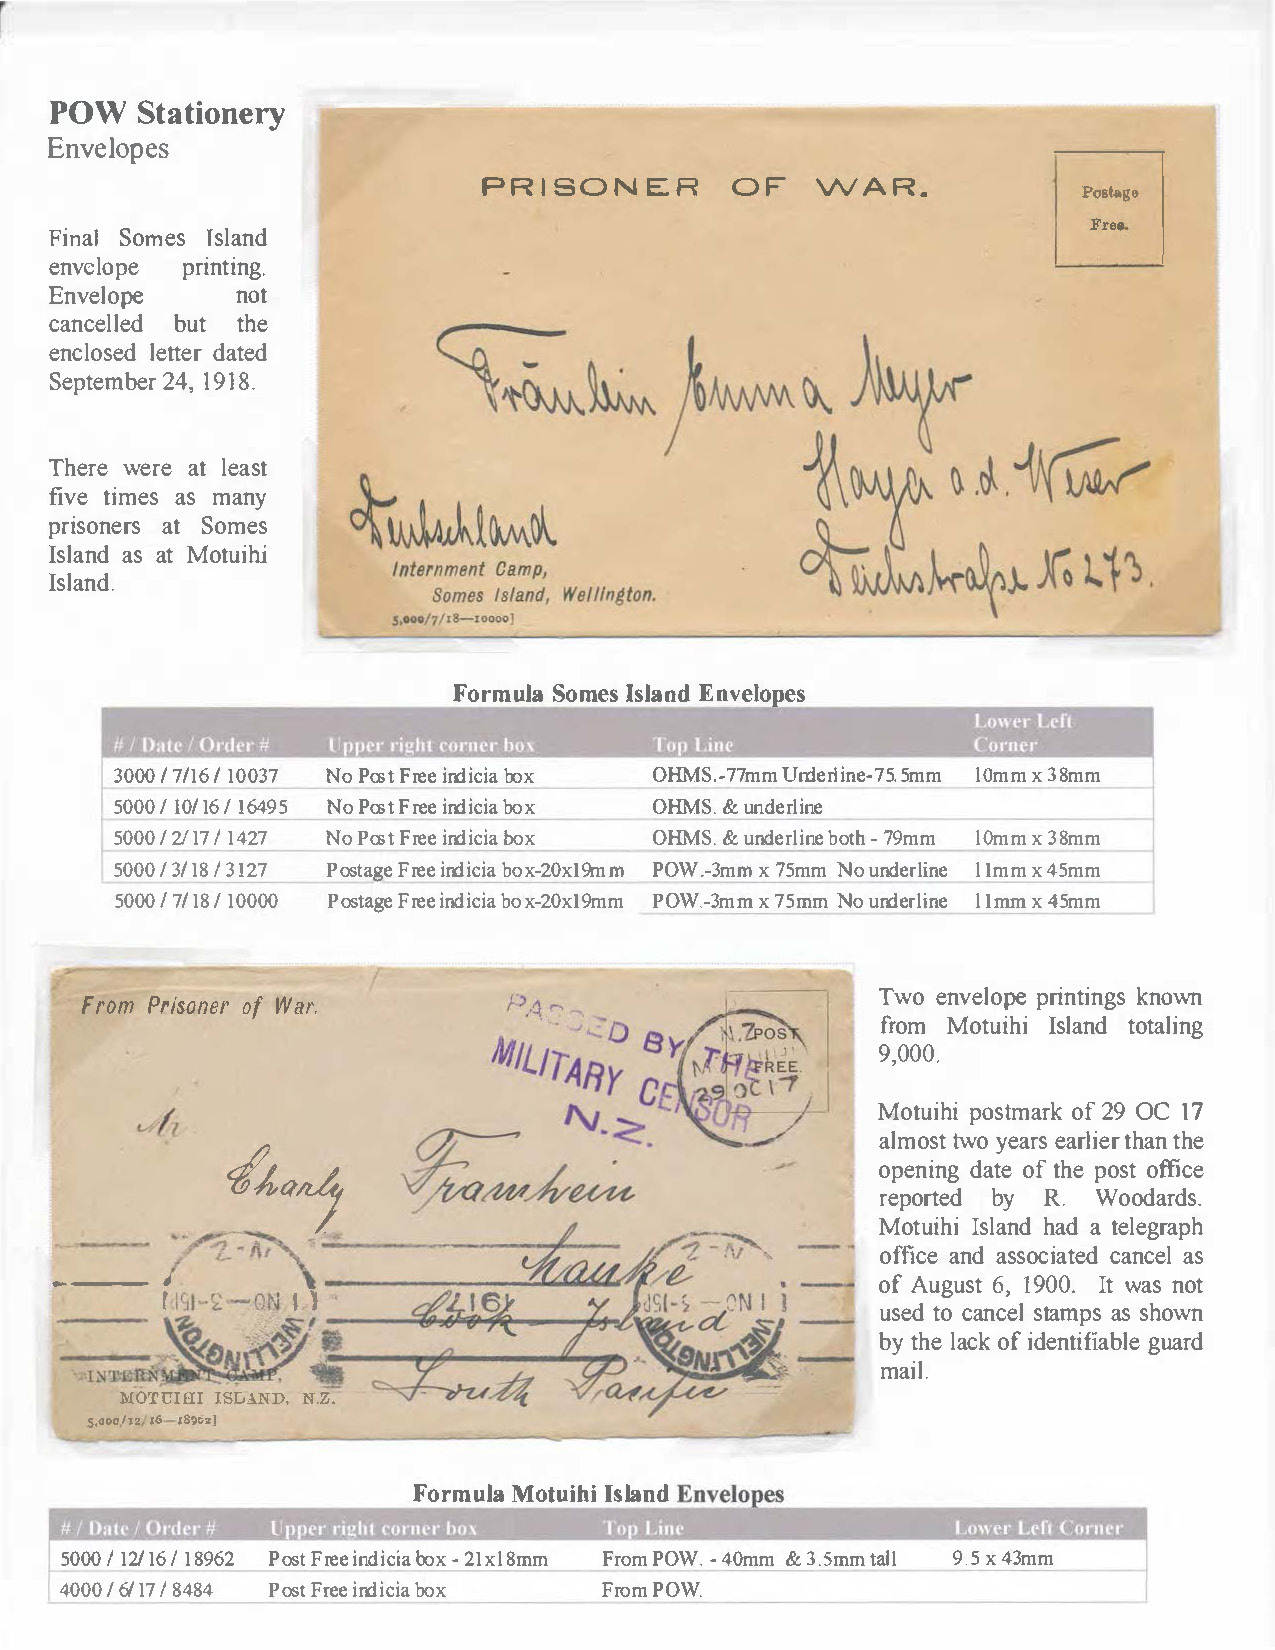 POW Stationery
Envelopes
Final Somes Island
envelope printing.
Envelope not
cancelled but the
enclosed letter dated
September 24, 1918.
There were at least
five times as many
prisoners at Somes
Island as at Motuihi
Island.
PRISONER OF WAR.
Postage
Free.
Fräulein Emma Meyer
Hoya a.d. Weser
Deutschland
Deichstraße No 273.
Internment Camp,
Somes Island, Wellington.
5,000/7/18—10000]
Formula Somes Island Envelopes
# / Date / Order # Upper right corner box Top Line Lower Left Corner
3000 / 7/16 / 10037 No Post Free indicia box OHMS.-77mm Underline-75.5mm 10mm x 38mm
5000 / 10/16 / 16495 No Post Free indicia box OHMS. & underline
5000 / 2/17 / 1427 No Post Free indicia box OHMS. & underline both - 79mm 10mm x 38mm
5000 / 3/18 / 3127 Postage Free indicia box-20x19mm POW.-3mm x 75mm No underline 11mm x 45mm
5000 / 7/18 / 10000 Postage Free indicia box-20x19mm POW.-3mm x 75mm No underline 11mm x 45mm
From Prisoner of War.
PASSED BY THE
MILITARY CENSOR
N.Z.
N.Z POST
FREE.
29 OC 17
Mr
Charly Framhein
Cook Island
South Pacific
WELLINGTON
WELLINGTON
1917
INTERNMENT CAMP,
MOTUIHI ISLAND, N.Z.
5,000/12/16—18962]
Two envelope printings known
from Motuihi Island totaling
9,000.
Motuihi postmark of 29 OC 17
almost two years earlier than the
opening date of the post office
reported by R. Woodards.
Motuihi Island had a telegraph
office and associated cancel as
of August 6, 1900. It was not
used to cancel stamps as shown
by the lack of identifiable guard
mail.
Formula Motuihi Island Envelopes
# / Date / Order # Upper right corner box Top Line Lower Left Corner
5000 / 12/16 / 18962 Post Free indicia box - 21x18mm From POW. - 40mm & 3.5mm tall 9.5 x 43mm
4000 / 6/17 / 8484 Post Free indicia box From POW.